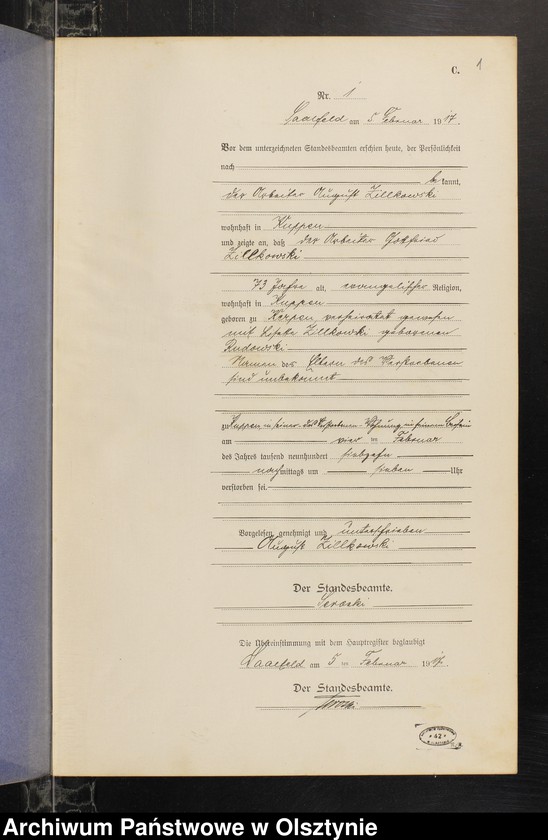 C. 1
Nr. 1
Saalfeld am 5 Februar 1917.
Vor dem unterzeichneten Standesbeamten erschien heute, der Persönlichkeit
nach
bekannt,
der Arbeiter August Zillkowski
wohnhaft in Kuppen
und zeigte an, daß der Arbeiter Gottfried
Zillkowski
73 Jahre alt, evangelischer Religion,
wohnhaft in Kuppen
geboren zu Kerpen verheiratet gewesen
mit Zillkowski geborenen
Rudowski
Namen der Eltern des Verstorbenen
sind unbekannt
zu Kuppen in seiner, des Verstorbenen Wohnung in seinem Beisein
am vier ten Februar
des Jahres tausend neunhundert siebzehn
nachmittags um sieben Uhr
verstorben sei.
Vorgelesen, genehmigt und unterschrieben
August Zillkowski
Der Standesbeamte.
Die Übereinstimmung mit dem Hauptregister beglaubigt
Saalfeld am 5 ten Februar 1917.
Der Standesbeamte.
42
Archiwum Państwowe w Olsztynie